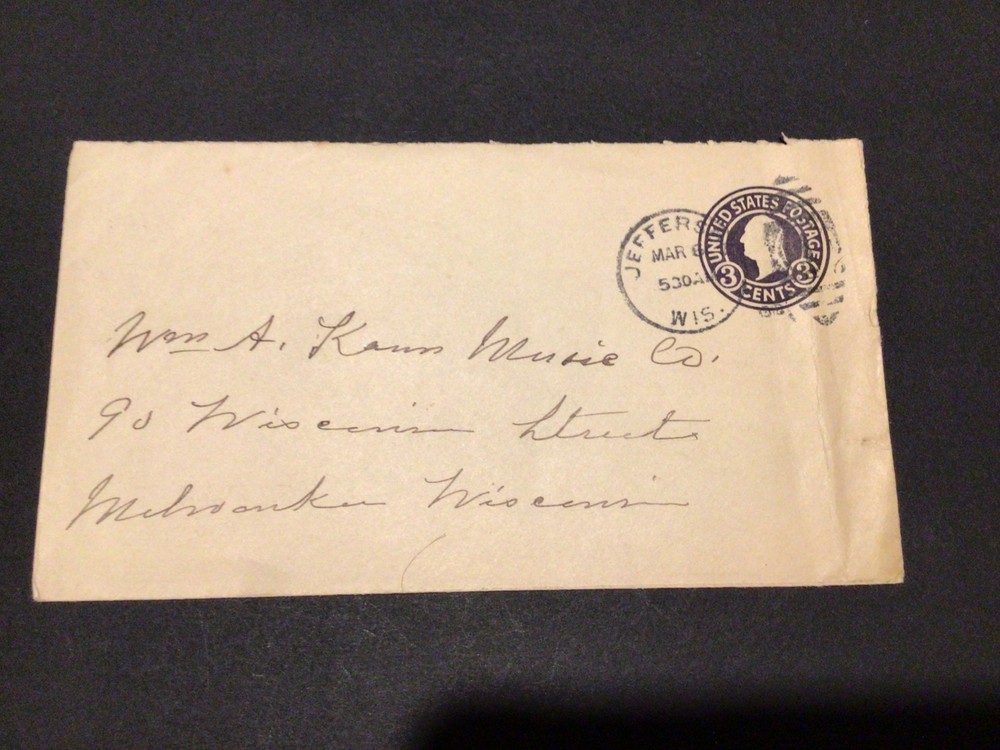 JEFFERS
MAR
530A
WIS.
UNITED STATES POSTAGE
3 CENTS 3
Wm A. Kaun Music Co.
90 Wisconsin Street
Milwaukee Wisconsin